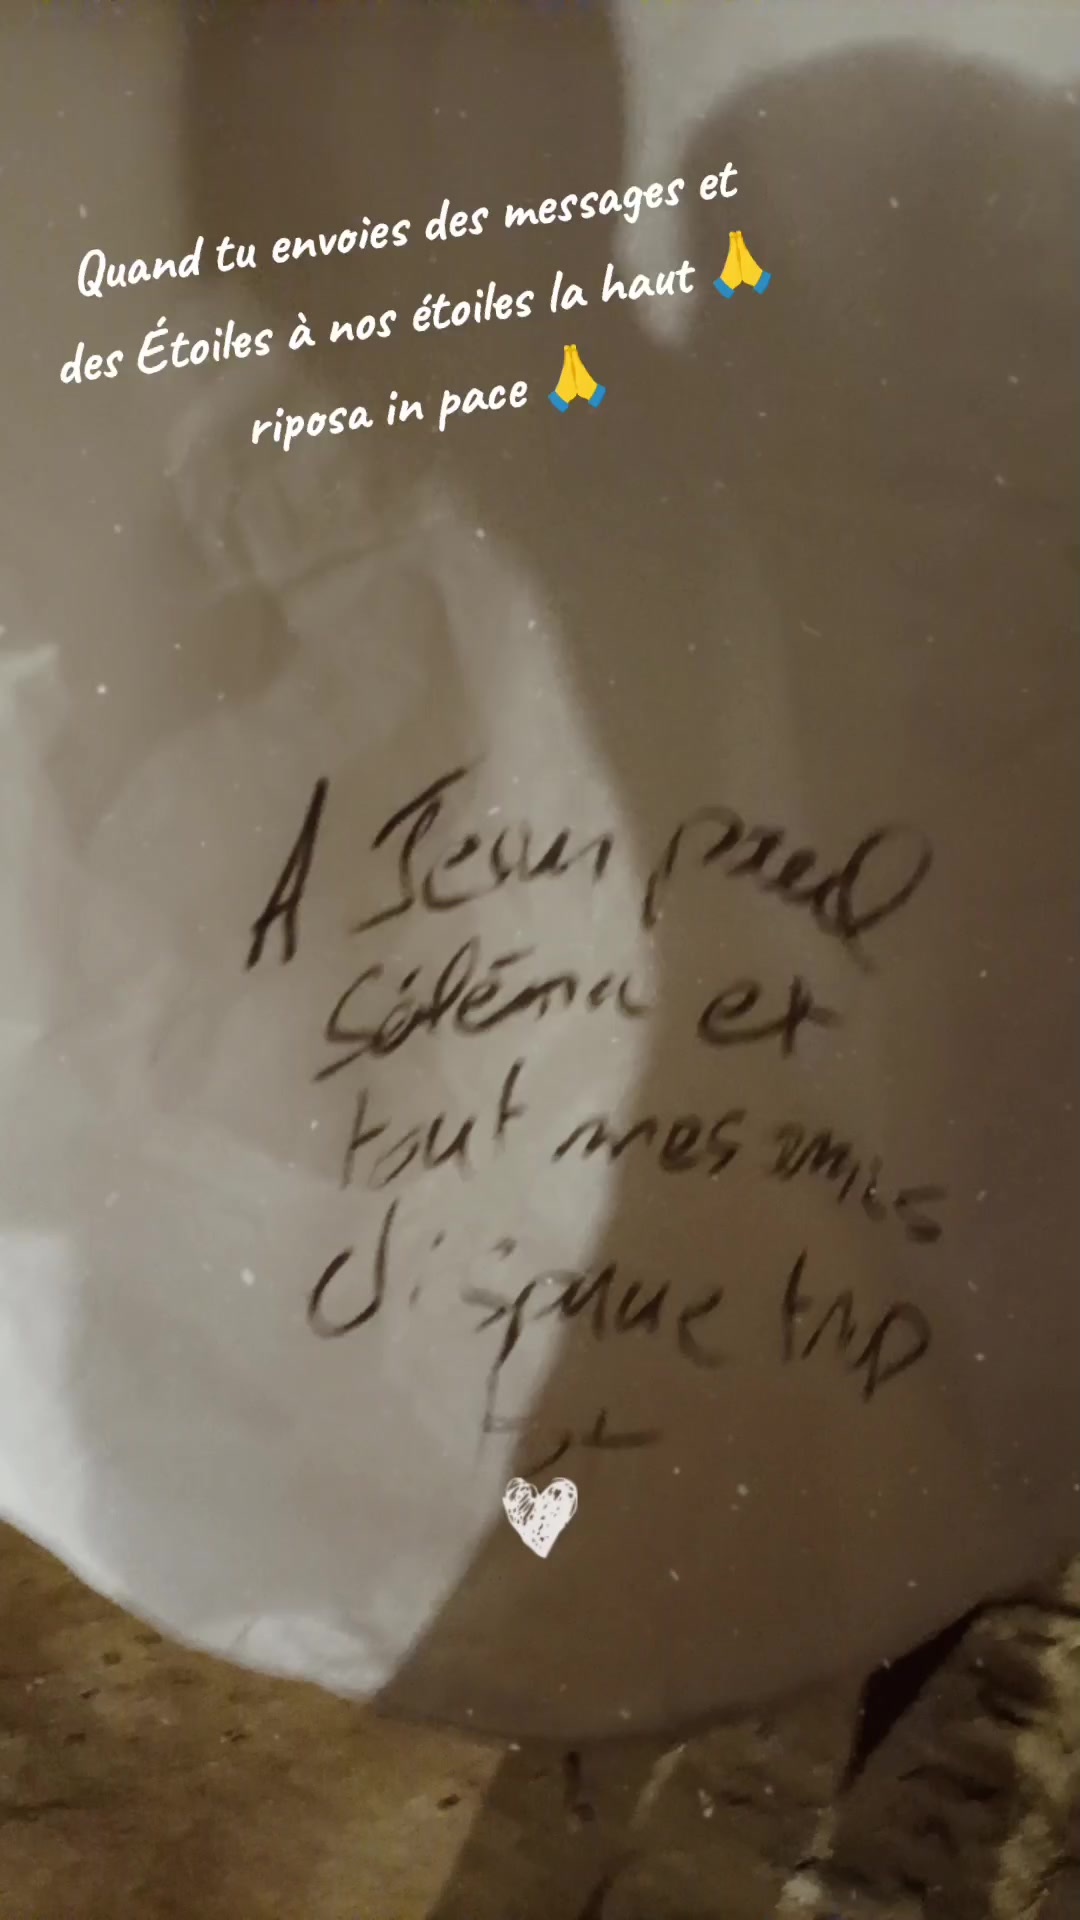 Quand tu envoies des messages et
des Étoiles à nos étoiles la haut 🙏
riposa in pace 🙏
A Jean
Séléma et
tout mes amis
disparue trop